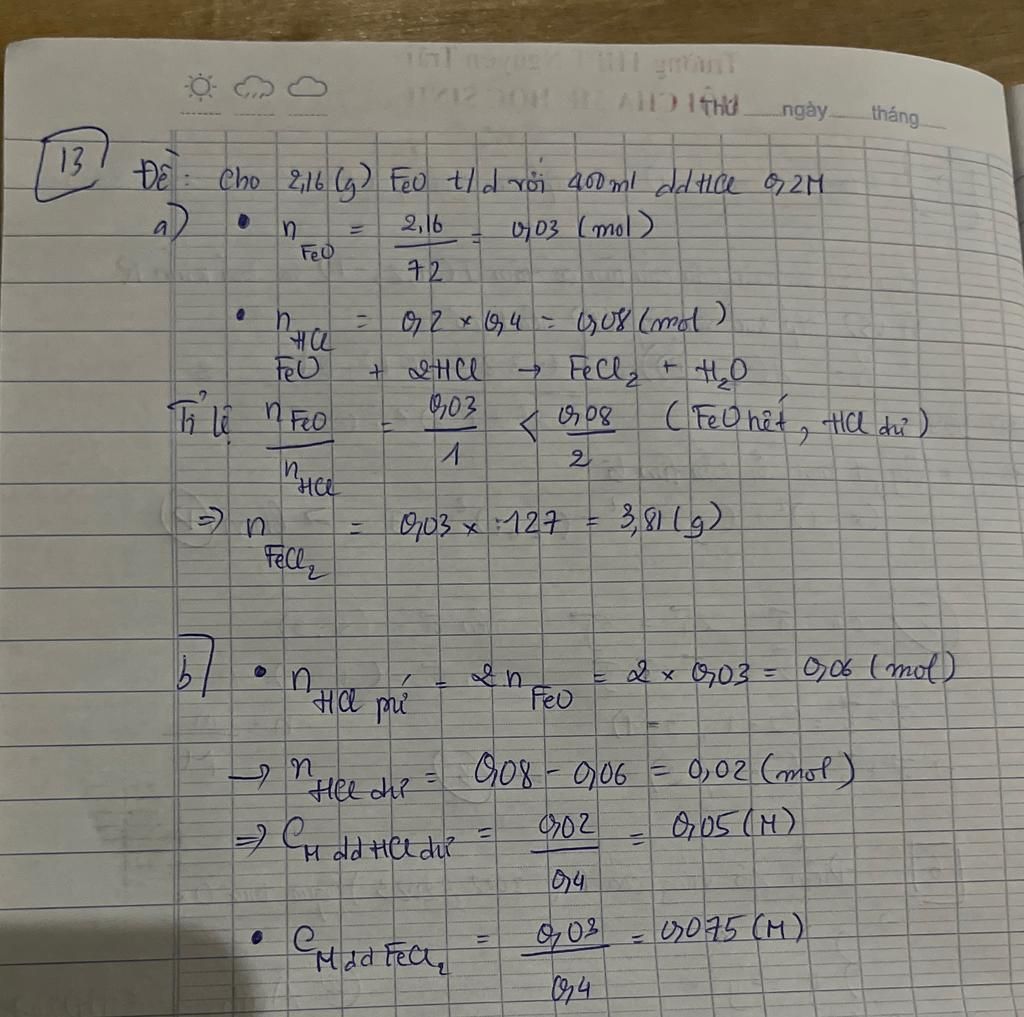 Thứ ngày tháng
13 Đề: Cho 2,16 (g) FeO t/d với 400ml dd HCl 0,2M
a) • n FeO = 2,16 / 72 = 0,03 (mol)
• n HCl = 0,2 × 0,4 = 0,08 (mol)
FeO + 2HCl → FeCl₂ + H₂O
Tỉ lệ n FeO / n HCl = 0,03 / 1 < 0,08 / 2 (FeO hết, HCl dư)
=> n FeCl₂ = 0,03 × 127 = 3,81 (g)
b) • n HCl pứ = 2 n FeO = 2 × 0,03 = 0,06 (mol)
→ n HCl dư = 0,08 - 0,06 = 0,02 (mol)
=> C M dd HCl dư = 0,02 / 0,4 = 0,05 (M)
• C M dd FeCl₂ = 0,03 / 0,4 = 0,075 (M)